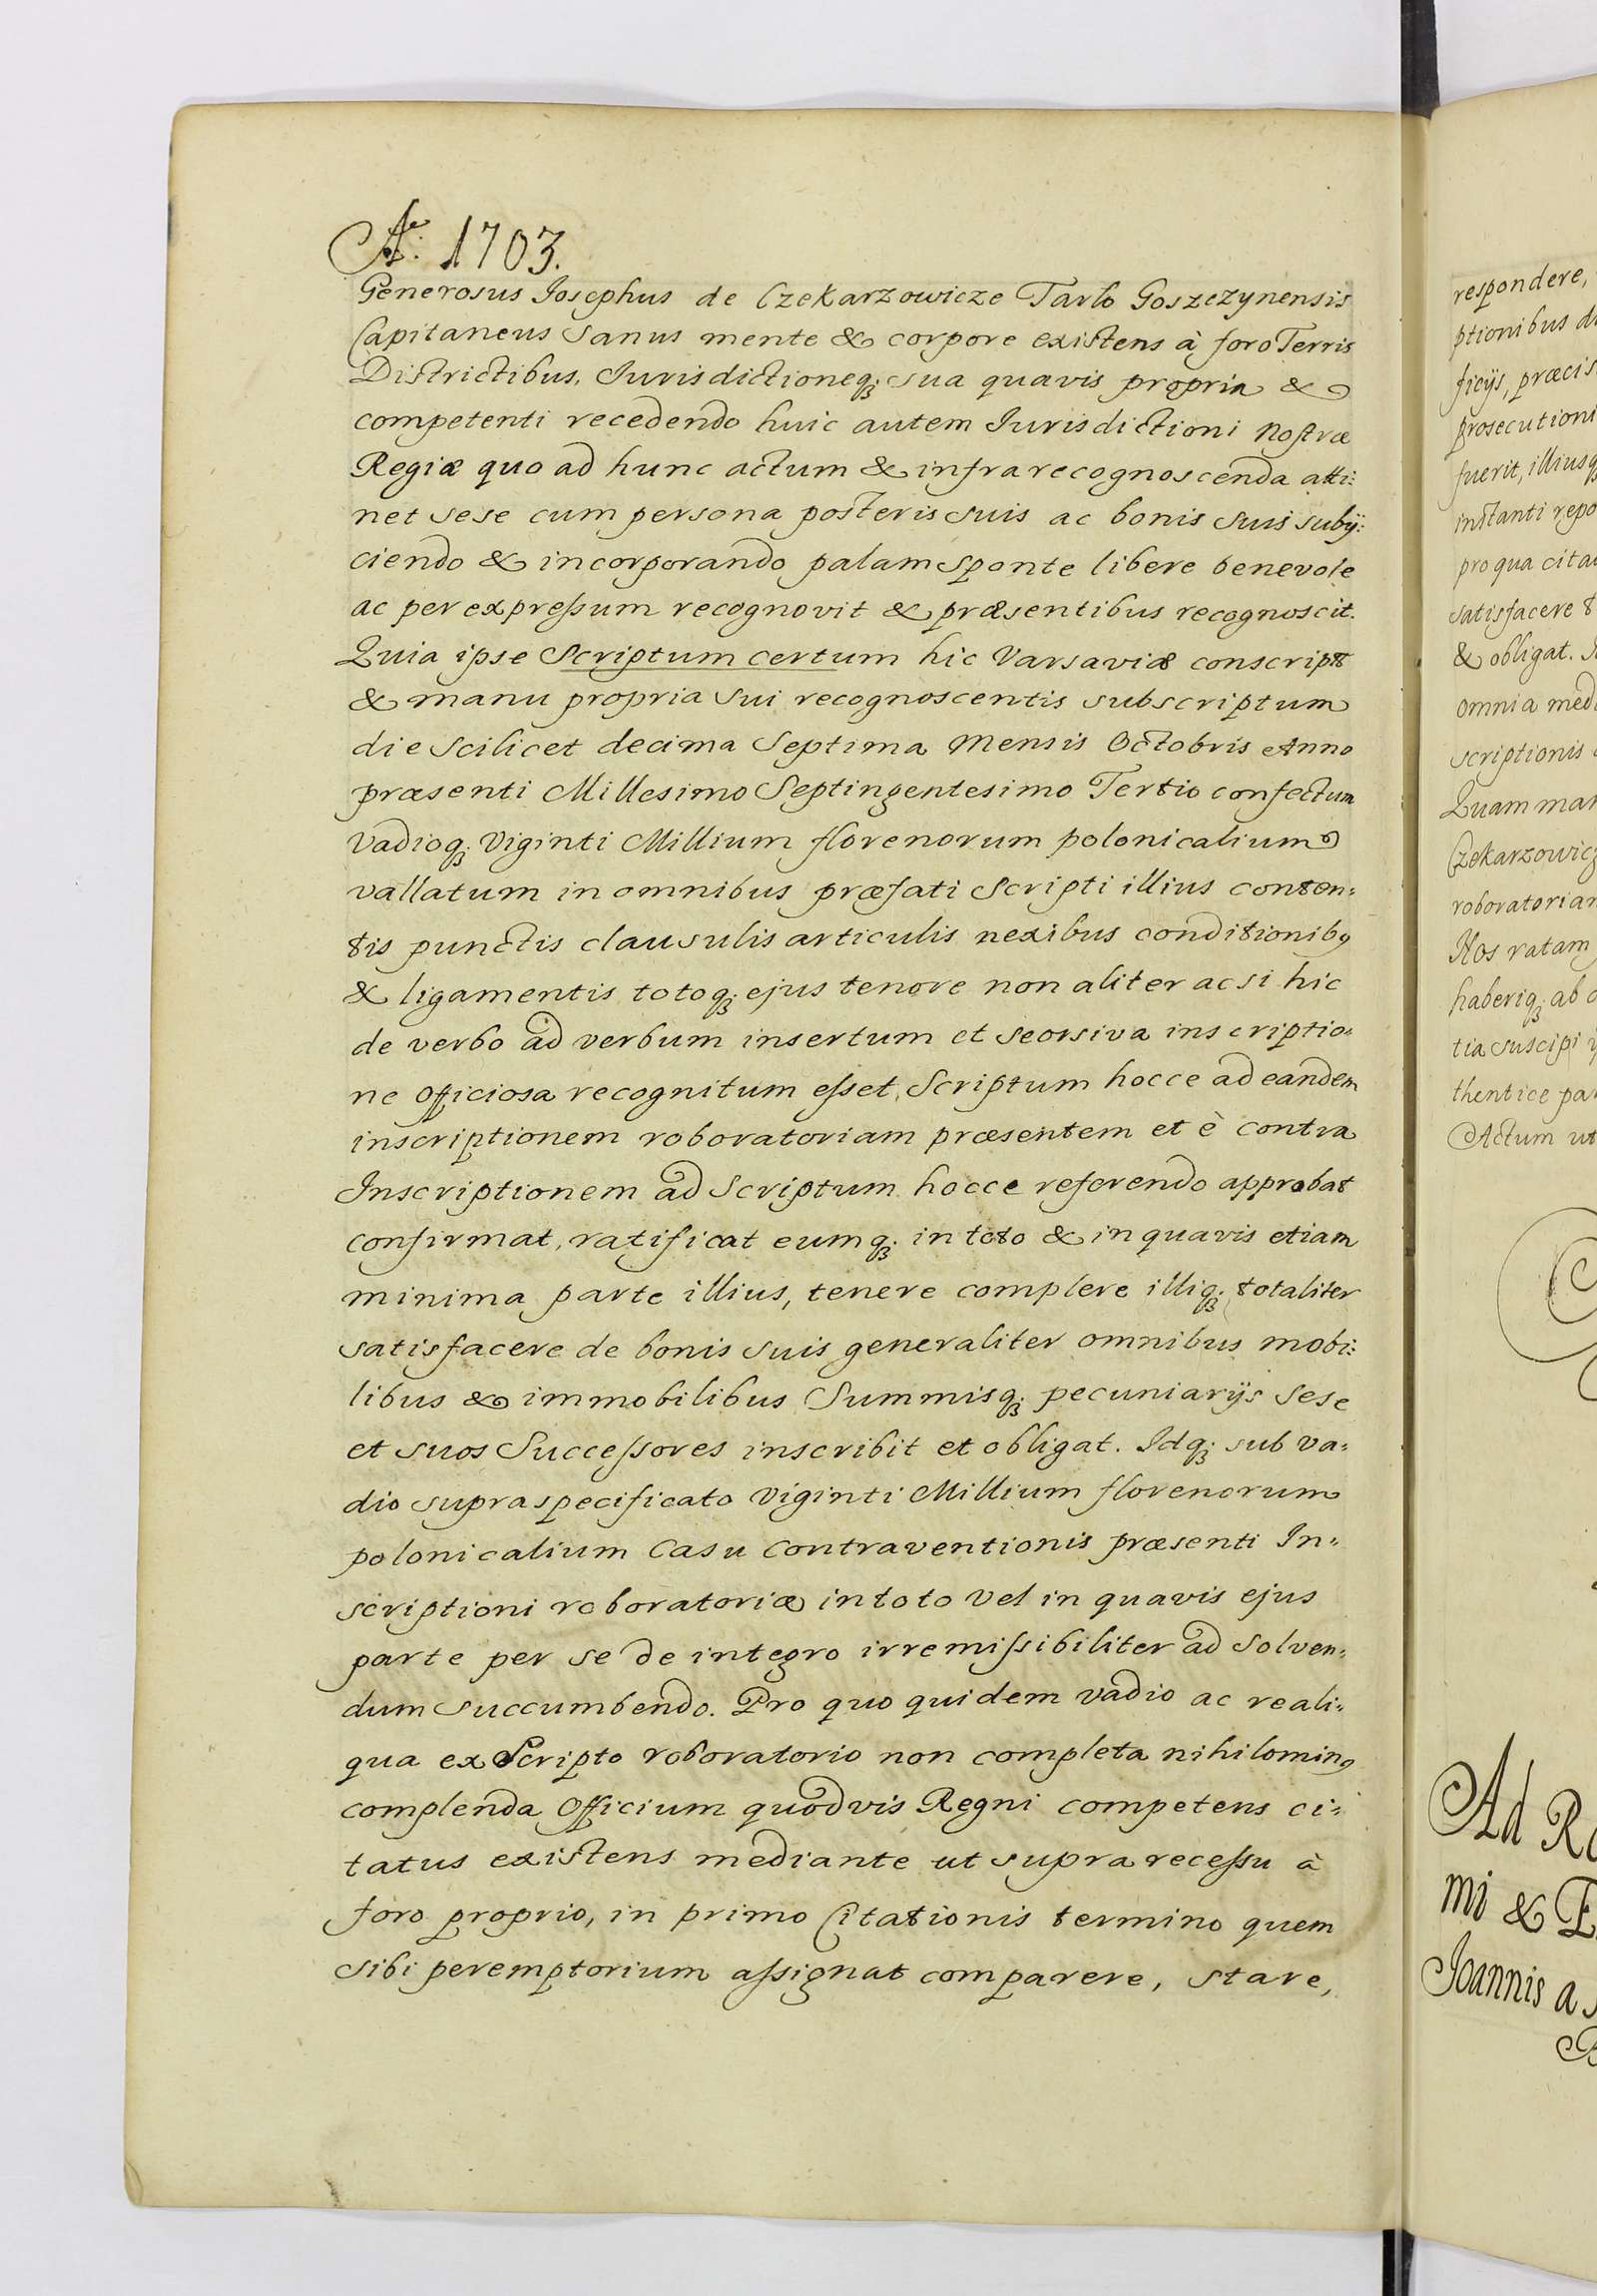 Ao. 1703.
Generosus Josephus de Czekarzowicze Tarło Goszczynensis
Capitaneus Sanus mente & corpore existens à foro Terris
Districtibus, Jurisdictioneq; sua quavis propria &
competenti recedendo huic autem Jurisdictioni Nostræ
Regiæ quo ad hunc actum & infra recognoscenda atti:
net sese cum persona posteris suis ac bonis suis subij:
ciendo & incorporando palam sponte libere benevole
ac per expressum recognovit & præsentibus recognoscit.
Quia ipse Scriptum certum hic Varsaviæ conscript
& manu propria sui recognoscentis subscriptum
die scilicet decima Septima Mensis Octobris Anno
præsenti Millesimo Septingentesimo Tertio confectum
Vadioq; Viginti Millium florenorum polonicalium
vallatum in omnibus præfati Scripti illius conten:
tis punctis clausulis articulis nexibus conditionibq
& ligamentis totoq; ejus tenore non aliter ac si hic
de verbo ad verbum insertum et seorsiva inscriptio:
ne Officiosa recognitum esset, Scriptum hocce ad eandem
inscriptionem roboratoriam præsentem et è contra
Inscriptionem ad Scriptum hocce referendo approbat
confirmat, ratificat eumq; in toto & in quavis etiam
minima parte illius, tenere complere illiq; totaliter
satisfacere de bonis suis generaliter omnibus mobi:
libus & immobilibus Summisq; pecuniarijs Sese
et suos Successores inscribit et obligat. Idq; sub va:
dio supra specificato Viginti Millium florenorum
polonicalium Casu Contraventionis præsenti In:
scriptioni roboratoriæ in toto Vel in quavis ejus
parte per se de integro irremissibiliter ad Solven:
dum Succumbendo. Pro quo quidem vadio ac reali:
qua ex Scripto roboratorio non completa nihilominq
complenda Officium quodvis Regni competens ci:
tatus existens mediante ut supra recessu à
foro proprio, in primo Citationis termino quem
sibi peremptorium assignat comparere, stare,
respondere,
ptionibus
ficijs,
prosecutioni
fuerit, illiusq
instanti repo
pro qua cita
satisfacere
& obligat.
omnia med
scriptionis
Quam man
Czekarzowicz
roboratoriam
Nos ratam
haberiq; ab
tia suscipi
thentice pa
Actum ut
Ad R
mi & E
Joannis a